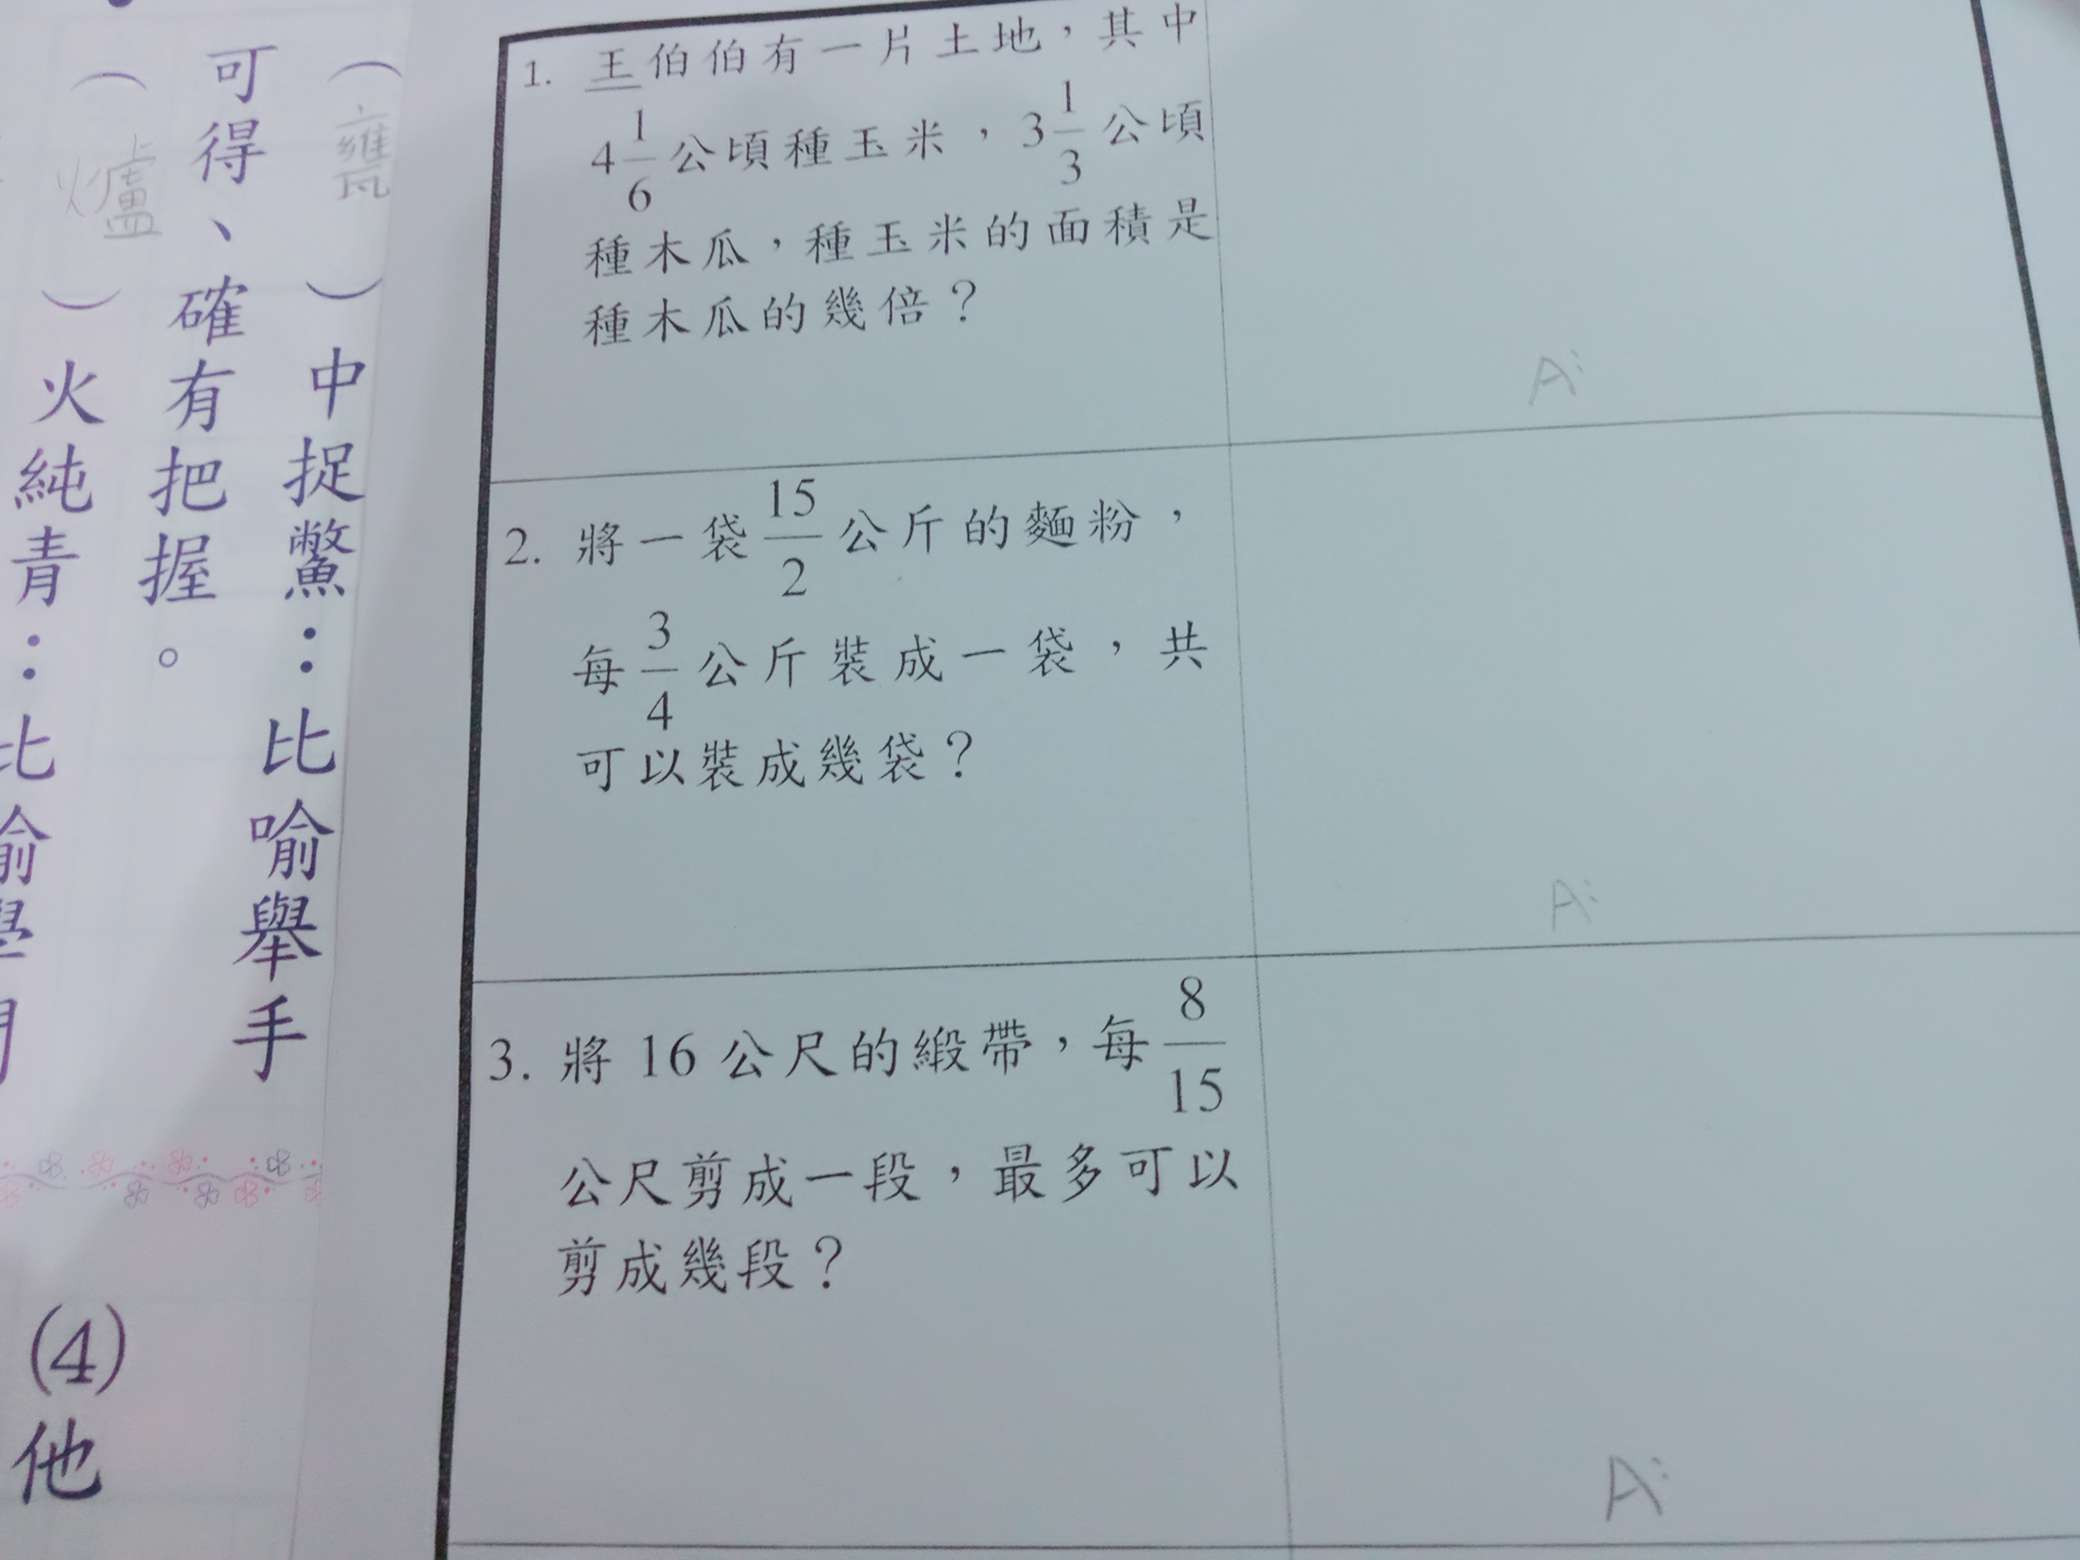 （甕）中捉鱉：比喻舉手
可得、確有把握。
（爐）火純青：比喻學
(4)他
1. 王伯伯有一片土地，其中
4 1/6 公頃種玉米，3 1/3 公頃
種木瓜，種玉米的面積是
種木瓜的幾倍？
A:
2. 將一袋 15/2 公斤的麵粉，
每 3/4 公斤裝成一袋，共
可以裝成幾袋？
A:
3. 將 16 公尺的緞帶，每 8/15
公尺剪成一段，最多可以
剪成幾段？
A: